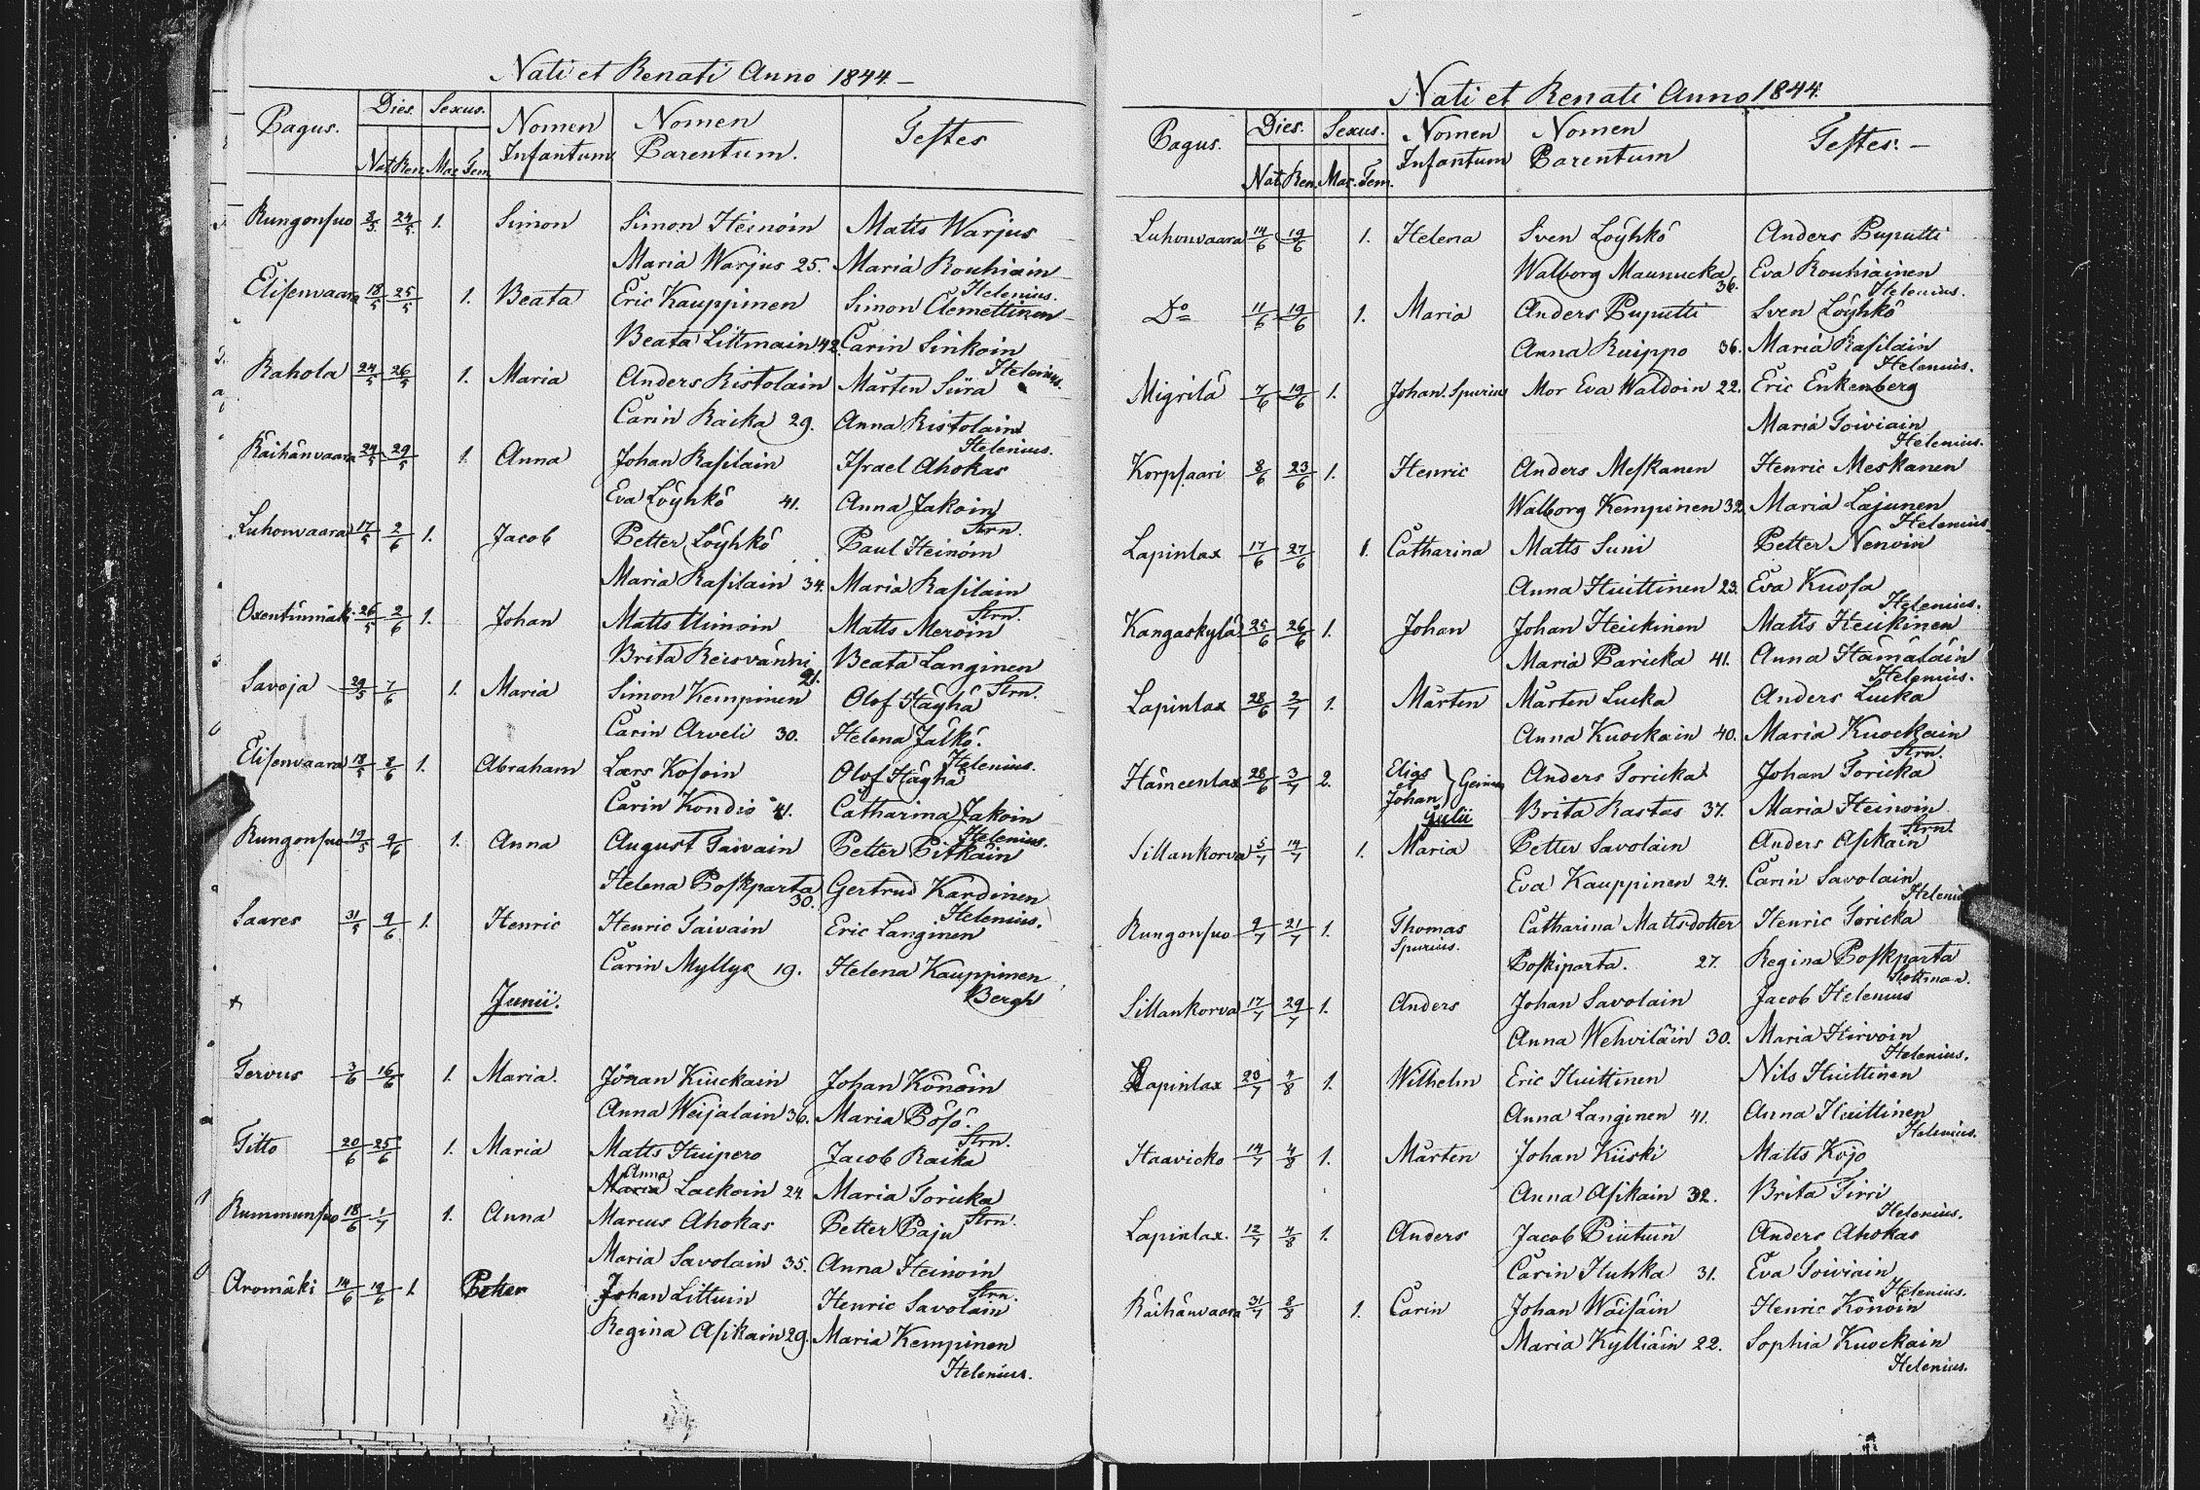 Nati et Renati Anno 1844.
Pagus. Dies. Sexus. Nomen Infantum Nomen Parentum. Testes
Nat. Ren. Mas. Fem.
Rungonsuo 3/5 24/5 1. Simon Simon Heinoin Matts Warjus
Maria Warjus 25. Maria Rouhiain
Helenius.
Elisenvaara 18/5 25/5 1. Beata Eric Kauppinen Simon Clemettinen
Beata Littmain 42. Carin Sinkoin
Helenius.
Rahola 24/5 26/5 1. Maria Anders Ristolain Mårten Siira
Carin Raika 29. Anna Ristolain
Helenius.
Räihänvaara 24/5 29/5 1. Anna Johan Rasilain Israel Ahokas
Eva Löyhkö 41. Anna Jakoin
Strn.
Luhonvaara 17/5 2/6 1. Jacob Petter Löyhkö Paul Heinoin
Maria Rasilain 34. Maria Rasilain
Strn.
Oxentinmäki 26/5 2/6 1. Johan Matts Uimoin Matts Meroin
Brita Reisvänni 21. Beata Langinen
Strn.
Savoja 29/5 7/6 1. Maria Simon Kempinen Olof Häyhä
Carin Arveli 30. Helena Jälkö.
Helenius.
Elisenvaara 18/5 8/6 1. Abraham Lars Kosoin Olof Häyhä
Carin Kondis 41. Catharina Jakoin
Helenius.
Rungonsuo 19/5 9/6 1. Anna August Taivain Petter Pitkäin
Helena Poskparta 30. Gertrud Kärdinen
Helenius.
Saares 31/5 9/6 1. Henric Henric Taivain Eric Langinen
Carin Myllys 19. Helena Kauppinen
Bergh
Junii.
Tervus 3/6 16/6 1. Maria. Jöran Kiuckain Johan Könöin
Anna Weijalain 36. Maria Pösö.
Strn.
Titto 20/6 25/6 1. Maria Matts Huipero Jacob Raika
Anna
Maria Lackoin 24. Maria Toricka
Strn.
Rummunsuo 18/6 1/7 1. Anna Marcus Ahokas Petter Paju
Maria Savolain 35. Anna Heinoin
Strn.
Aromäki 14/6 19/6 1. Peter Johan Littuin Henric Savolain
Regina Asikain 29. Maria Kempinen
Helenius.
Nati et Renati Anno 1844.
Pagus. Dies. Sexus. Nomen Infantum Nomen Parentum Testes.
Nat. Ren. Mas. Fem.
Luhonvaara 14/6 19/6 1. Helena Sven Löyhkö Anders Puputti
Walborg Maunucka 36. Eva Rouhiainen
Helenius.
Do 11/6 19/6 1. Maria Anders Puputti Sven Löyhkö
Anna Ruippo 36. Maria Rasilain
Helenius.
Migrilä 7/6 19/6 1. Johan. Spurius Mor Eva Waldoin 22. Eric Enkenberg
Maria Toiviain
Helenius.
Korpsaari 8/6 23/6 1. Henric Anders Meskanen Henric Meskanen
Walborg Kempinen 32. Maria Lajunen
Helenius.
Lapinlax 17/6 27/6 1. Catharina Matts Suni Petter Nenoin
Anna Huittinen 23. Eva Kuosa
Helenius.
Kangaskylä 25/6 26/6 1. Johan Johan Heickinen Matts Heickinen
Maria Paricka 41. Anna Hämäläin
Helenius.
Lapinlax 28/6 2/7 1. Mårten Mårten Lucka Anders Lucka
Anna Kuockain 40. Maria Kuockain
Strn.
Hämeenlax 28/6 3/7 2. Elias Johan } Gemini Anders Toricka Johan Toricka
Julii Brita Rastas 37. Maria Heinoin
Strn.
Sillankorva 5/7 14/7 1. Maria Petter Savolain Anders Asikain
Eva Kauppinen 24. Carin Savolain
Helenius
Rungonsuo 9/7 21/7 1. Thomas Catharina Mattsdotter Henric Toricka
Spurius. Poskiparta. 27. Regina Poskparta
Sillankorva 17/7 29/7 1. Anders Johan Savolain Jacob Helenius
Anna Wehviläin 30. Maria Hirvoin
Helenius.
Lapinlax 23/7 4/8 1. Wilhelm Eric Huittinen Nils Huittinen
Anna Langinen 41. Anna Huittinen
Helenius.
Haavicko 14/7 4/8 1. Mårten Johan Kiiski Matts Kojo
Anna Asikain 32. Brita Tirri
Helenius.
Lapinlax. 12/7 4/8 1. Anders Jacob Piutuin Anders Ahokas
Carin Huhka 31. Eva Toiviain
Helenius.
Räihänvaara 31/7 8/8 1. Carin Johan Wäisäin Henric Könöin
Maria Kylliäin 22. Sophia Kuockain
Helenius.